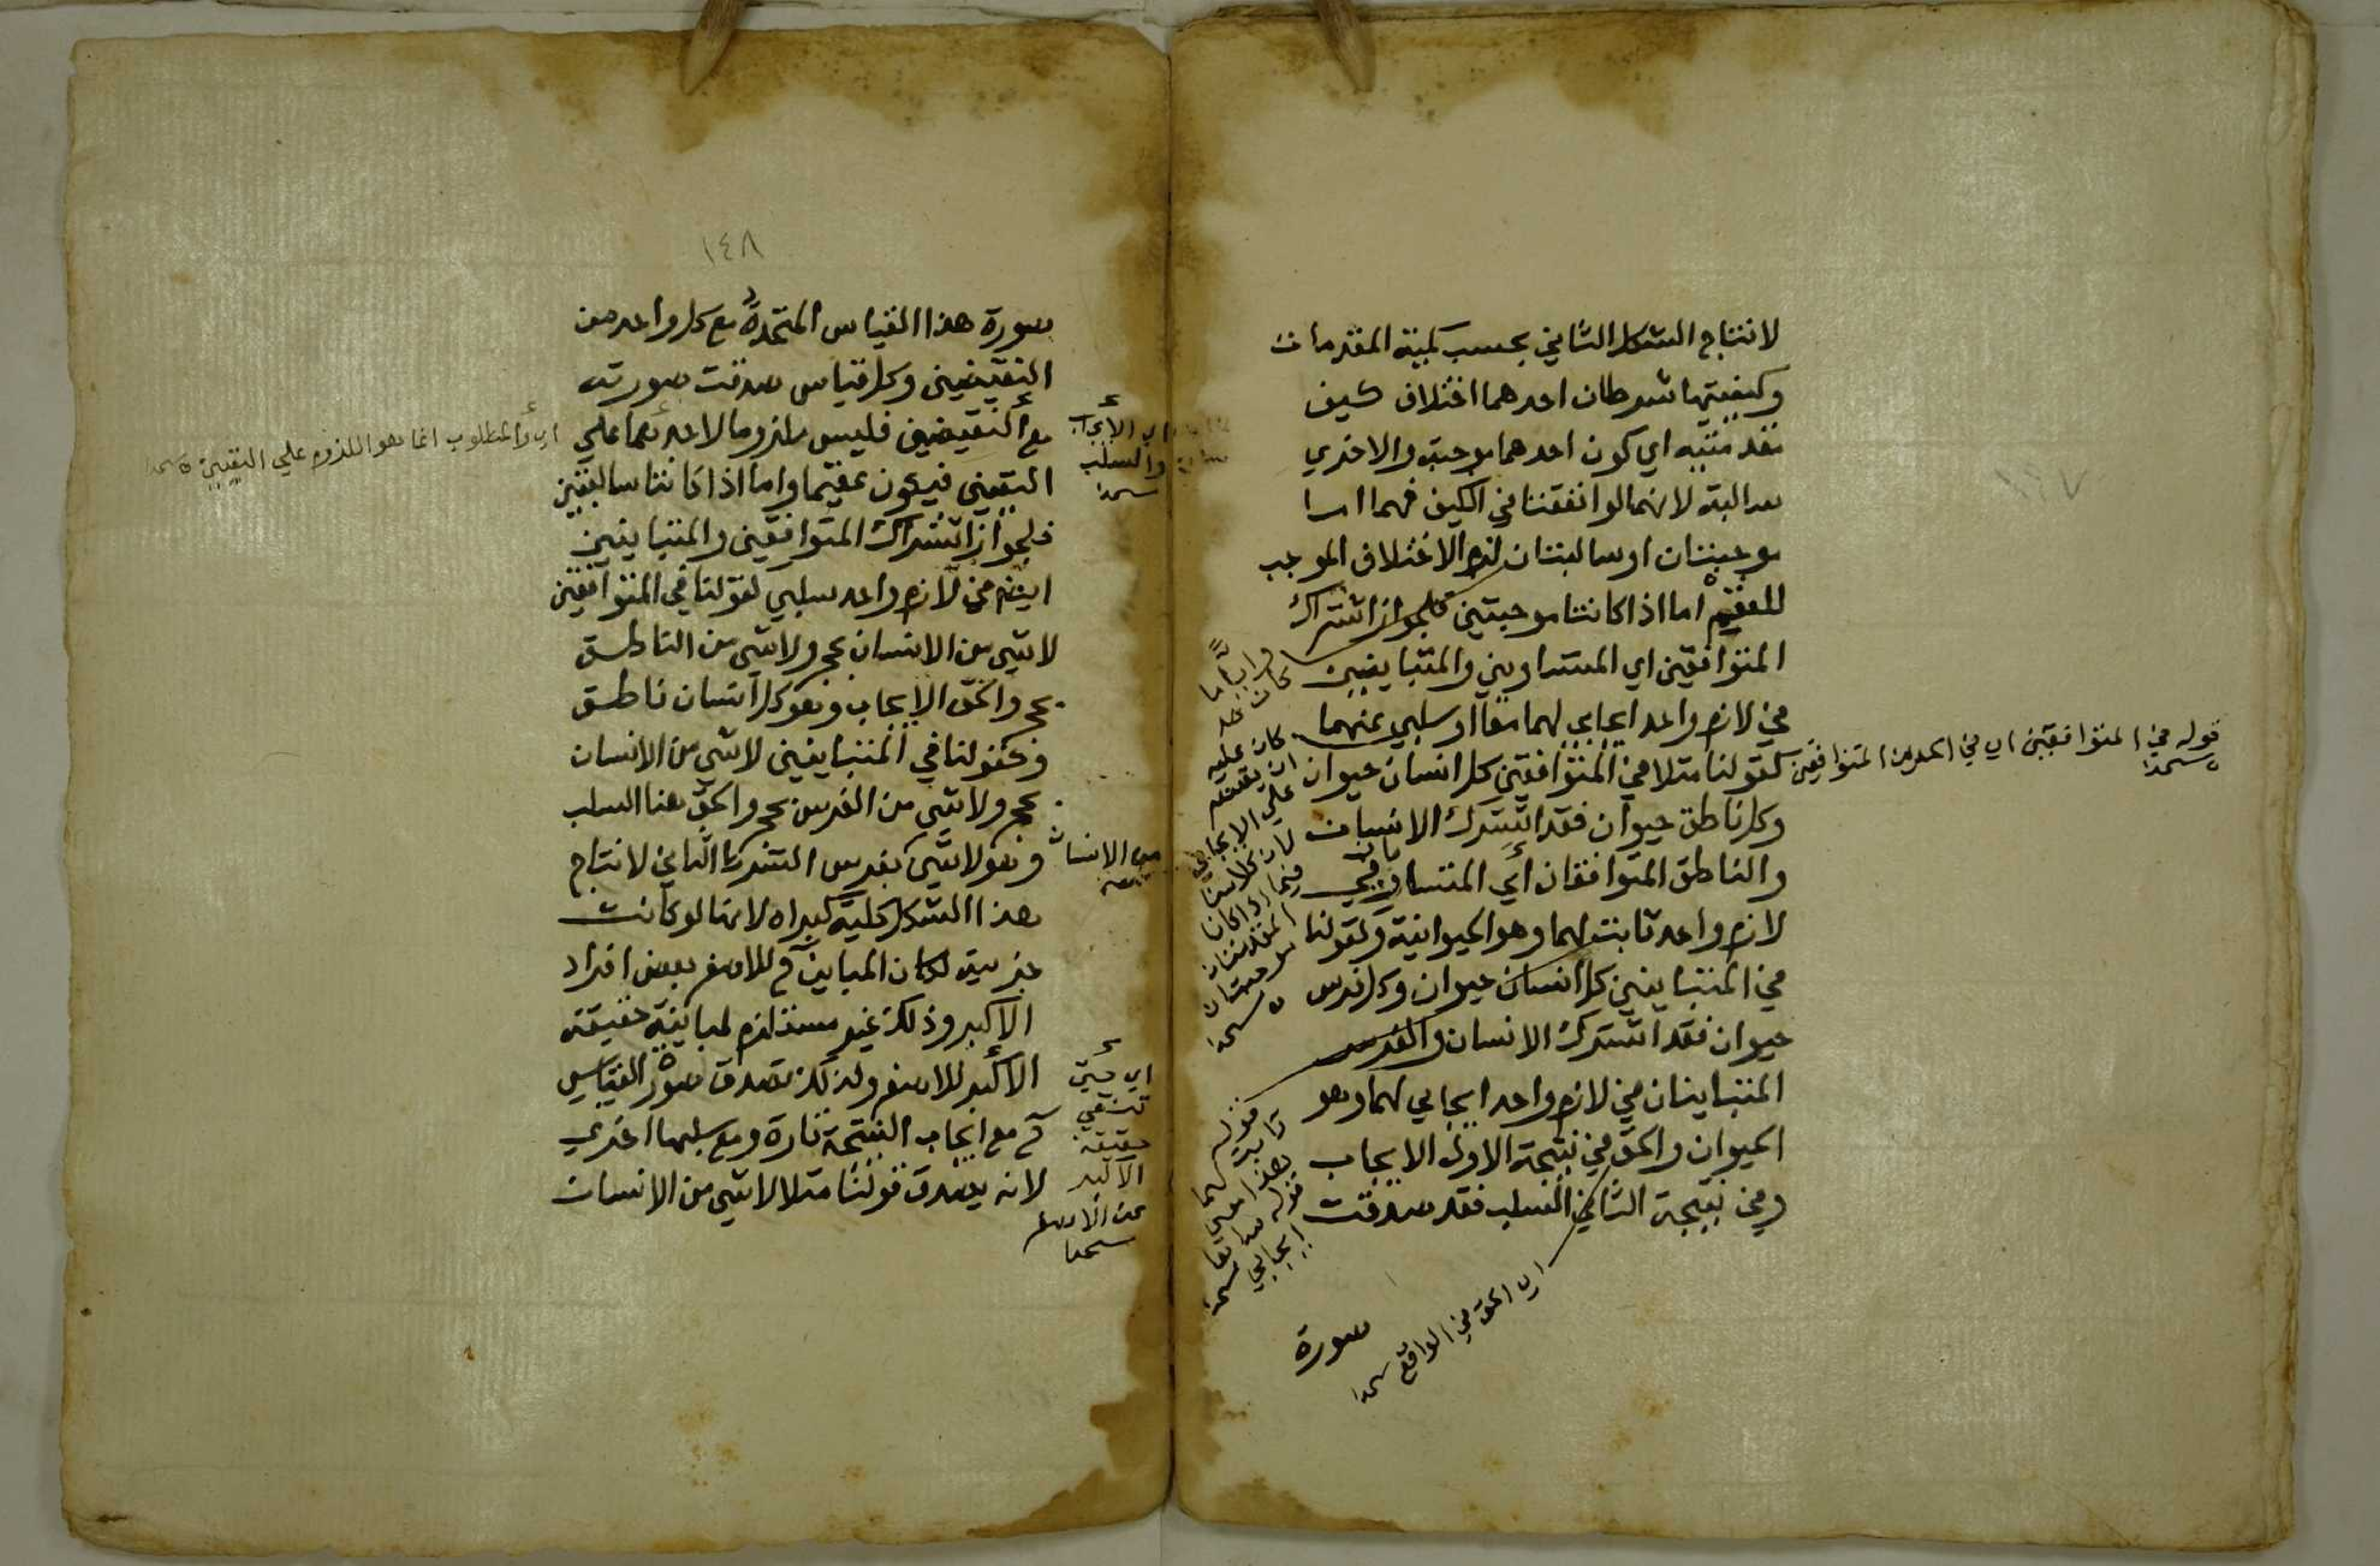 لانتاج الشكل الثاني بحسب كمية المقدمات
وكيفيتها شرطان احدهما اختلاف كيف
مقدمتيه اي كون احدهما موجبة والاخري
سالبة لانهما لو اتفقتا في الكيف فهما اما
موجبتان او سالبتان لزم الاختلاف الموجب
للعقم اما اذا كانتا موجبتين فلجواز اشتراك
المتوافقين اي المتساويين والمتباينين
في لازم واحد ايجابي لهما معا او سلبي عنهما
كقولنا مثلا في المتوافقين كل انسان حيوان
وكل ناطق حيوان فقد اشترك الانسان
والناطق المتوافقان أي المتساويان في
لازم واحد ثابت لهما وهو الحيوانية وكقولنا
في المتباينين كل انسان حيوان وكل فرس
حيوان فقد اشترك الانسان والفرس
المتباينان في لازم واحد ايجابي لهما وهو
الحيوان والحق في نتيجة الاول الايجاب
وفي نتيجة الثاني السلب فقد صدقت
صورة
قوله في المتوافقين اي في الحدين المتوافقين
كان عليه
ان يقدمه
علي الايجابي
قوله
هذا
ايجابي
اي الحق في الواقع
١٤٨
صورة هذا القياس المتحدة مع كل واحد من
النقيضين وكل قياس صدقت صورته
مع النقيضين فليس ملزوما لاحدهما علي
التعيين فيكون عقيما واما اذا كانتا سالبتين
فلجواز اشتراك المتوافقين والمتباينين
ايضا في لازم واحد سلبي كقولنا في المتوافقين
لا شي من الانسان بحجر ولا شي من الناطق
بحجر والحق الايجاب وهو كل انسان ناطق
وكقولنا في المتباينين لا شي من الانسان
بحجر ولا شي من الفرس بحجر والحق هنا السلب
وهو لا شي بفرس الشرط الثاني لانتاج
هذا الشكل كلية كبراه لانها لو كانت
جزيية لكان المباين ح للاصغر بعض افراد
الاكبر وذلك غير مستلزم لمباينة حقيقة
الاكبر للاصغر ولذلك تصدق صورة القياس
ح مع ايجاب النتيجة تارة ومع سلبها اخري
لانه يصدق قولنا مثلا لا شي من الانسان
اي الايجاب
والسلب
اي والمطلوب انما هو اللزوم علي التعيين
من الانسان
اي حتي
تنتفي
حقيقة
الاكبر
عن الاصغر